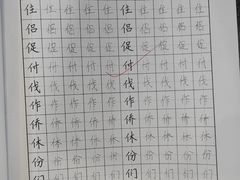 住 住 住 住 住 住 住 住 住 住
侣 侣 侣 侣 侣 侣 侣 侣 侣 侣
促 促 促 促 促 促 促 促 促 促
付 付 付 付 付 付 付 付 付 付
伐 伐 伐 伐 伐 伐 伐 伐 伐 伐
作 作 作 作 作 作 作 作 作 作
侨 侨 侨 侨 侨 侨 侨 侨 侨 侨
休 休 休 休 休 休 休 休 休 休
份 份 份 份 份 份 份 份 份 份
们 们 们 们 们 们 们 们 们 们